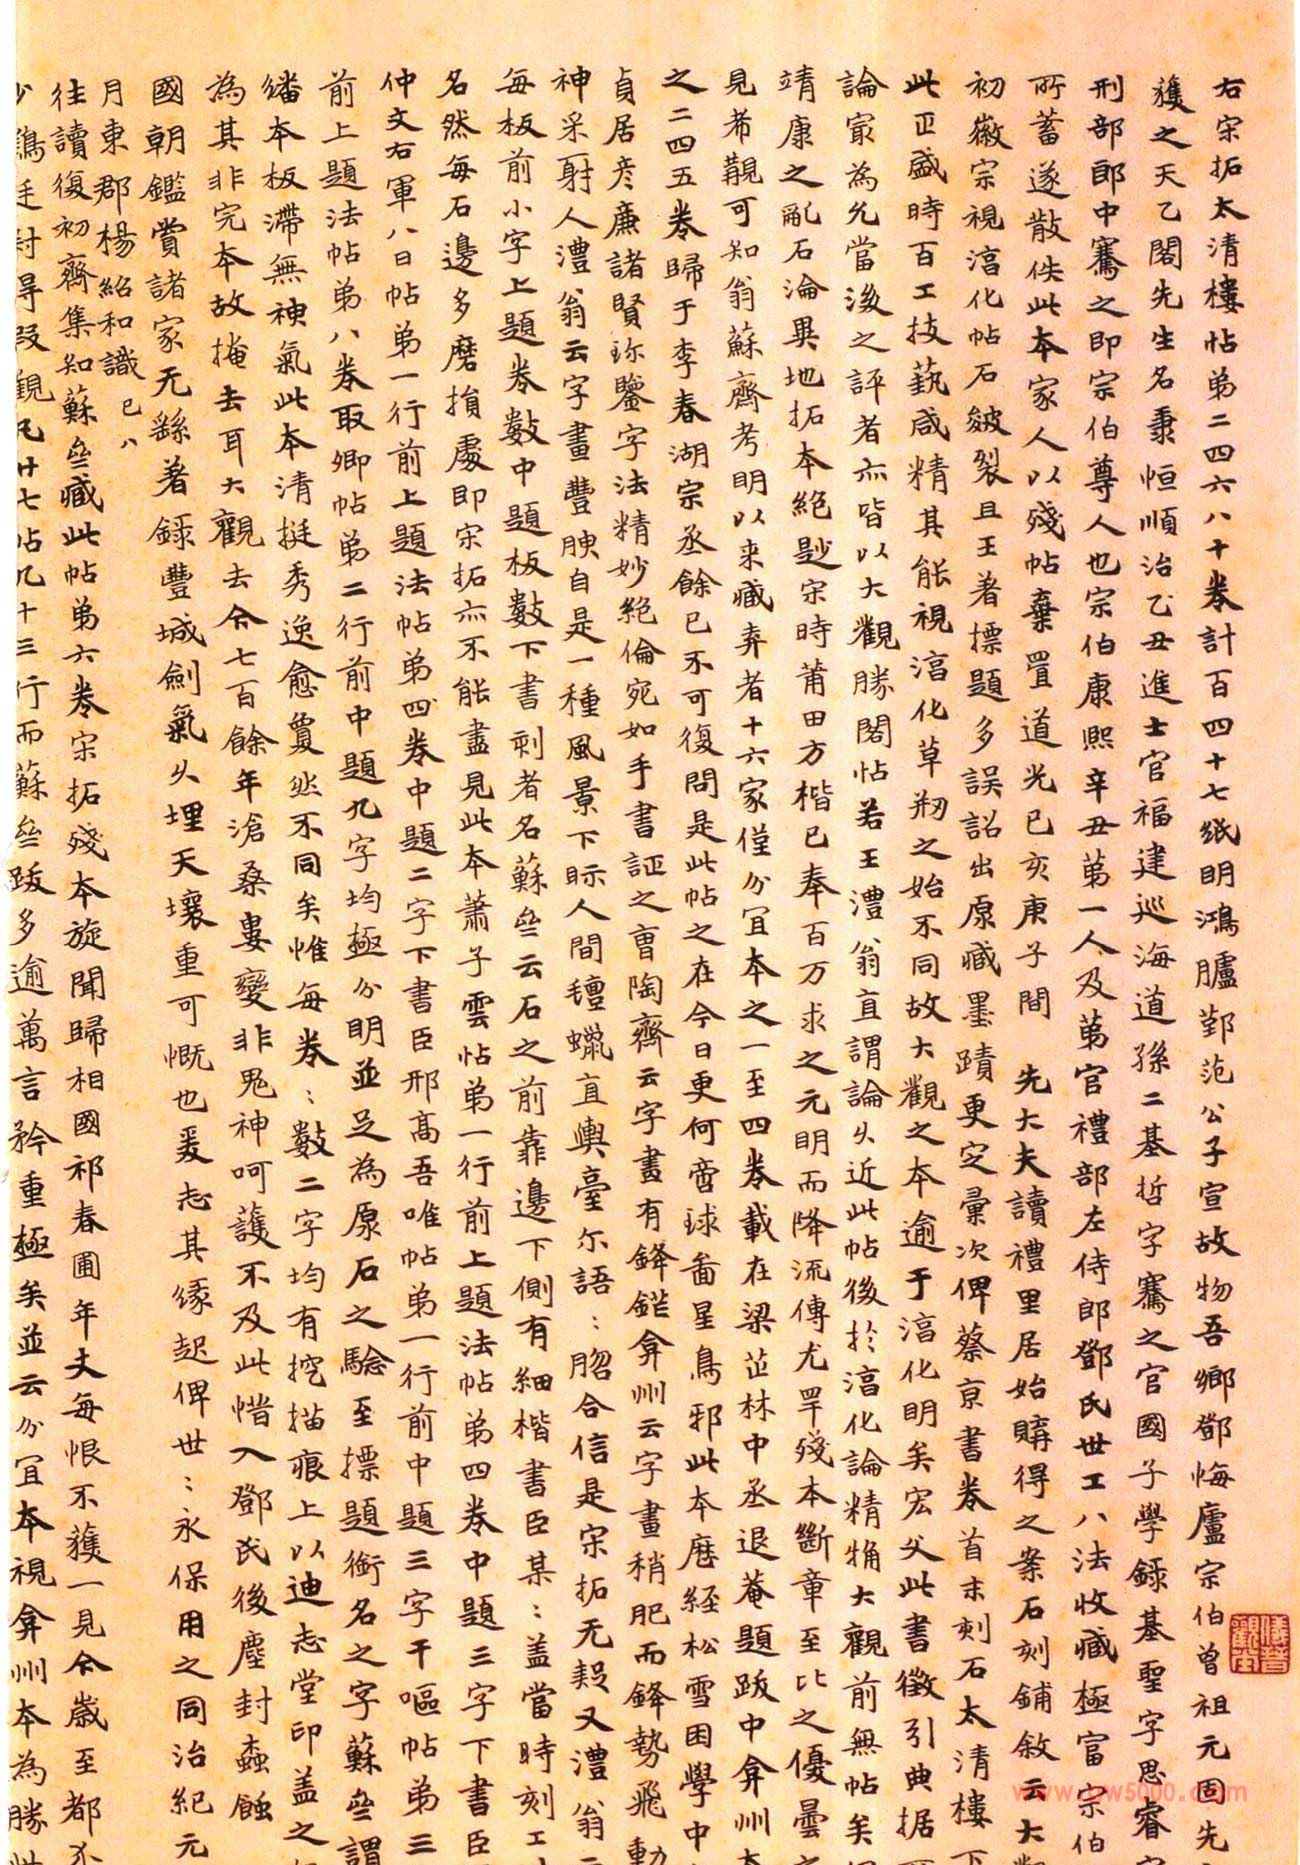 右宋拓太清樓帖弟二四六八十卷計百四十七紙明鴻臚鄞范公子宣故物吾鄉鄧悔廬宗伯曾祖元固先
獲之天乙閣先生名秉恒順治乙丑進士官福建巡海道孫二基哲字騫之官國子學錄基聖字思睿官
刑部郎中騫之即宗伯尊人也宗伯康熙辛丑第一人及第官禮部左侍郎鄧氏世工八法收藏極富宗伯
所蓄遂散佚此本家人以殘帖棄置道光己亥庚子間 先大夫讀禮里居始購得之案石刻鋪敘云大觀
初徽宗視淳化帖石皴裂且王著摽題多誤詔出原藏墨蹟更定彙次俾蔡京書卷首末刻石太清樓下
此正盛時百工技藝咸精其能視淳化草刱之始不同故大觀之本逾于淳化明矣宏父此書徵引典據
論寂為允當後之評者亦皆以大觀勝閣帖若王澧翁直謂論久近此帖後於淳化論精觕大觀前無帖矣
靖康之亂石淪異地拓本絕尠宋時莆田方楷已奉百万求之元明而降流傳尤罕殘本斷章至比之優曇
見希覯可知翁蘇齋考明以来藏弆者十六家僅分冝本之一至四卷載在梁茝林中丞退菴題跋中弇州
之二四五卷歸于李春湖宗丞餘已不可復問是此帖之在今日更何啻球啚星鳥邪此本歷經松雪困學中
貞居彦廉諸賢珎鑒字法精妙絕倫宛如手書證之曹陶齋云字畫有鋒鋩弇州云字畫稍肥而鋒勢飛動
神采射人澧翁云字畫豐腴自是一種風景下眎人間氊蠟直輿臺尓語〻脗合信是宋拓无疑又澧翁
每板前小字上題卷數中題板數下書刺者名蘇叅云石之前靠邊下側有細楷書臣某〻蓋當時刻工
名然每石邊多磨損處即宋拓亦不能盡見此本蕭子雲帖弟一行前上題法帖弟四卷中題三字下書臣
仲文右軍八日帖弟一行前上題法帖弟四卷中題二字下書臣邢高吾唯帖弟一行前中題三字千嘔帖弟三
前上題法帖弟八卷取卿帖弟二行前中題九字均極分明並足為原石之驗至摽題銜名之字蘇叅謂
繙本板滯無神氣此本清挺秀逸愈夐然不同矣惟每卷〻數二字均有挖描痕上以迪志堂印蓋之
為其非完本故掩去耳大觀去今七百餘年滄桑婁變非鬼神呵護不及此惜入鄧氏後塵封蟲蝕
國朝鑑賞諸家无繇著錄豐城劍氣久埋天壤重可慨也爰志其緣起俾世〻永保用之同治紀元
月東郡楊紹和識 己八
往讀復初齋集知蘇叅藏此帖弟六卷宋拓殘本旋聞歸相國祁春圃年丈每恨不獲一見今歲至都
觀凡廿七帖九十三行而蘇叅跋多逾萬言矜重極矣並云分冝本視弇州本為勝